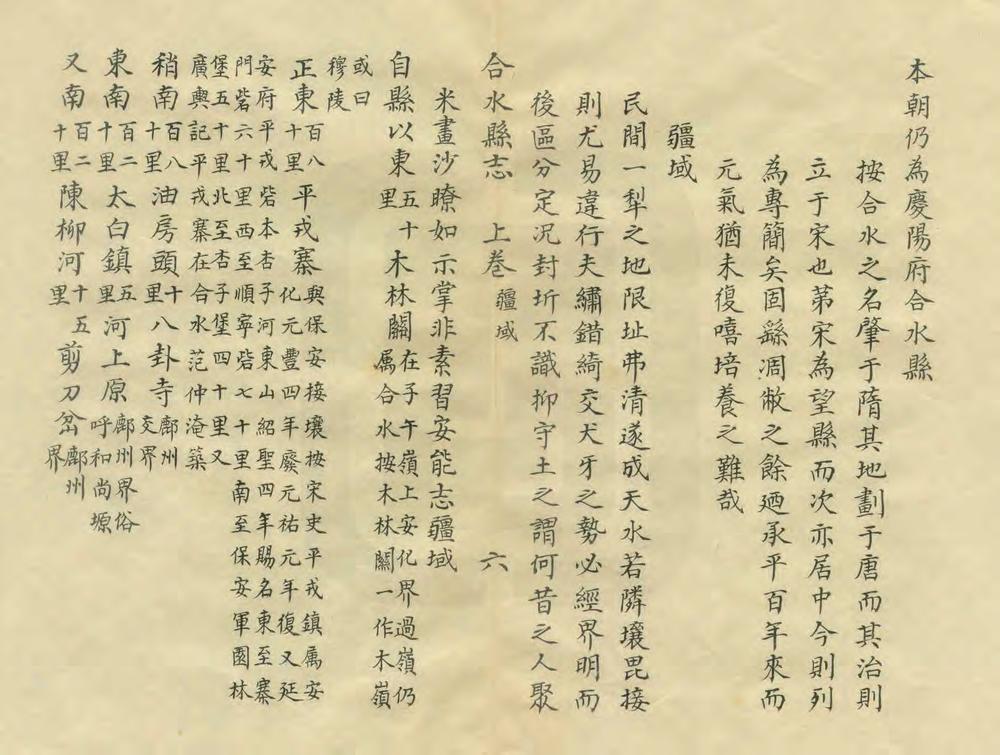 本朝仍為慶陽府合水縣
按合水之名肇于隋其地劃于唐而其治則
立于宋也第宋為望縣而次亦居中今則列
為專簡矣固繇凋敝之餘廼承平百年來而
元氣猶未復嘻培養之難哉
疆域
民間一犁之地限址弗清遂成天水若隣壤毘接
則尤易違行夫繡錯綺交犬牙之勢必經界明而
後區分定況封圻不識抑守土之謂何昔之人聚
合水縣志 上卷 疆域 六
米畫沙瞭如示掌非素習安能志疆域
自縣以東五十里木林關在子午嶺上安化界過嶺仍属合水按木林關一作木嶺
或曰穆陵
正東百八十里平戎寨與保安接壤按宋史平戎鎮属安化元豐四年廢元祐元年復又延
安府平戎砦本杏子河東山紹聖四年賜名東至寨門砦六十里西至順寧砦七十里南至保安軍園林
堡五十里北至杏子堡四十里又廣輿記平戎寨在合水范仲淹築
稍南百八十里油房頭十里八卦寺鄜州交界
東南百二十里太白鎮五里河上原鄜州界俗呼和尚塬
又南百二十里陳柳河十五里剪刀岔鄜州界